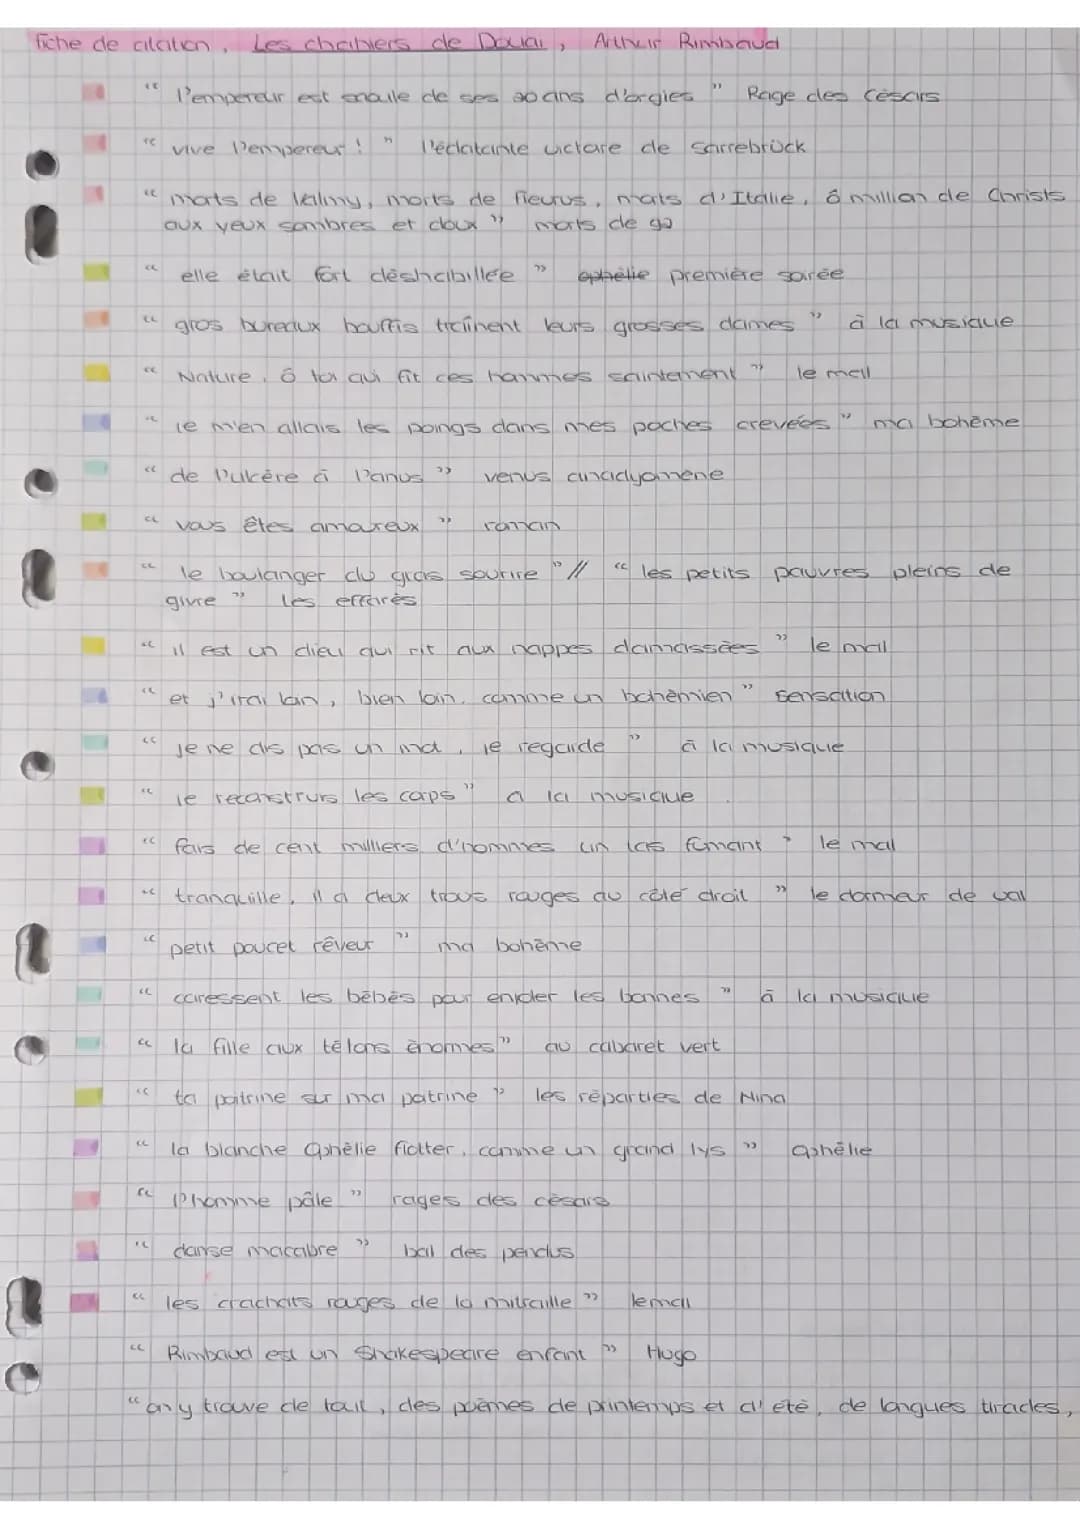 fiche de citation, Les chahiers de Douai, Arthur Rimbaud
" l'empereur est soulle de ses 20 ans d'orgies " Rage des Césars
" vive l'empereur ! " l'éclatante victoire de Sarrebrück
" morts de Valmy, morts de Fleurus, morts d'Italie, ô million de Christs
aux yeux sombres et doux " morts de 92
" elle était fort déshabillée " ophélie première soirée
" gros bureaux bouffis traînent leurs grosses dames " à la musique
" Nature, ô toi qui fit ces hommes saintement " le mal
" je m'en allais les poings dans mes poches crevées " ma bohème
" de l'ulcère à l'anus " venus anadyomène
" vous êtes amoureux " roman
" le boulanger du gras sourire " // " les petits pauvres pleins de
givre " les effarés
" il est un dieu qui rit aux nappes damassées " le mal
" et j'irai loin, bien loin, comme un bohémien " sensation
" je ne dis pas un mot, je regarde " à la musique
" je reconstruis les corps " à la musique
" fais de cent milliers d'hommes un tas fumant " le mal
" tranquille, il a deux trous rouges au côté droit " le dormeur de val
" petit poucet rêveur " ma bohème
" caressent les bébés pour enjoler les bonnes " à la musique
" la fille aux tétons énormes " au cabaret vert
" ta poitrine sur ma poitrine " les réparties de Nina
" la blanche Ophélie flotter, comme un grand lys " Ophélie
" l'homme pâle " rages des césars
" danse macabre " bal des pendus
" les crachats rouges de la mitraille " le mal
" Rimbaud est un Shakespeare enfant " Hugo
" on y trouve de tout, des poèmes de printemps et d'été, de longues tirades,